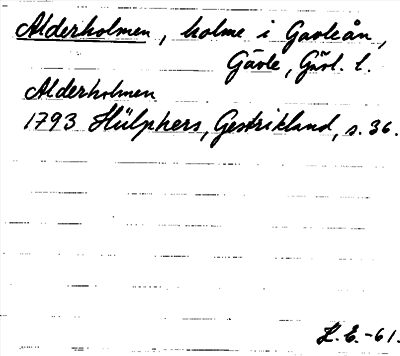 Alderholmen, holme i Gavleån,
Gävle, Gävl. l.
Alderholmen
1793 Hülphers, Gestrikland, s. 36.
L. E. -61.